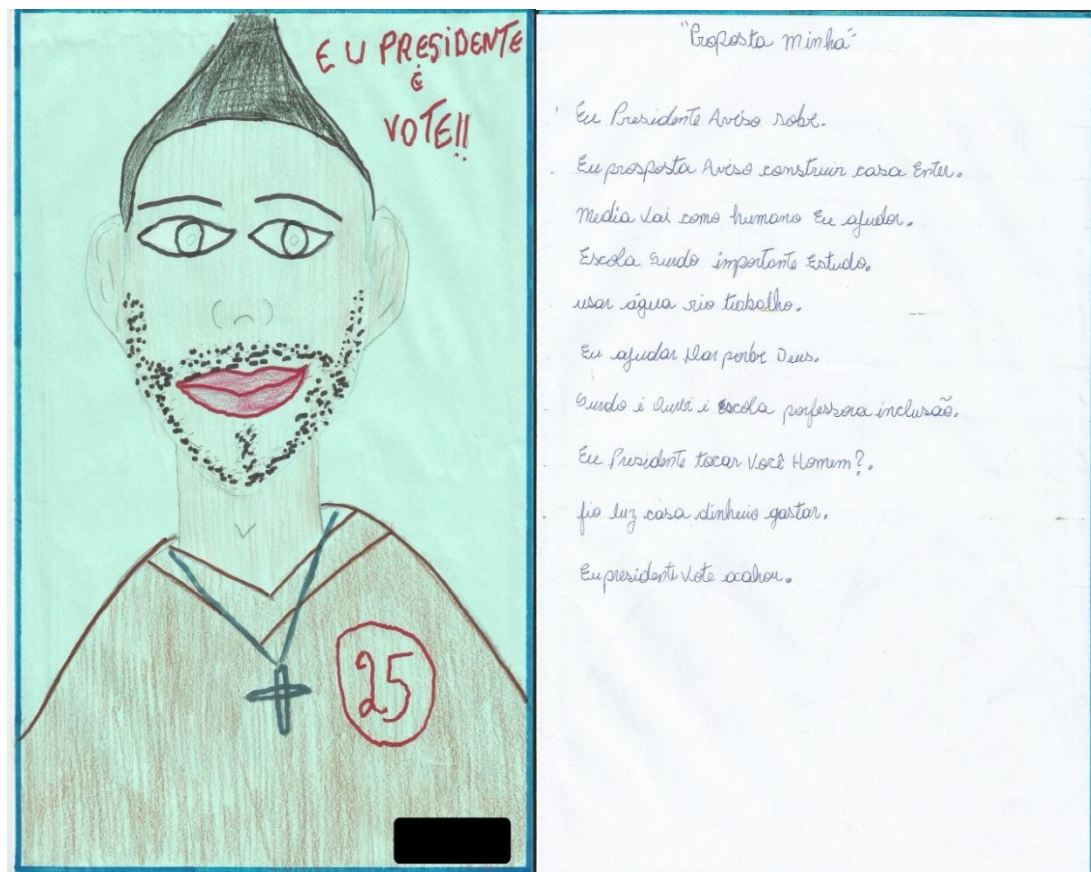 EU PRESIDENTE
É
VOTE!!
25
"Proposta Minha"
Eu Presidente Aviso sobre.
Eu prosposta Aviso construir casa Enter.
Media Vai como humano Eu ajudar.
Escola Surdo importante Estudo.
usar água rio trabalho.
Eu ajudar Dar porbe Deus.
Surdo i Ouvir i escola porfessora inclusão.
Eu Presidente tocar Você Homem?.
fio luz casa dinheiro gastar.
Eu presidente Vote acabou.